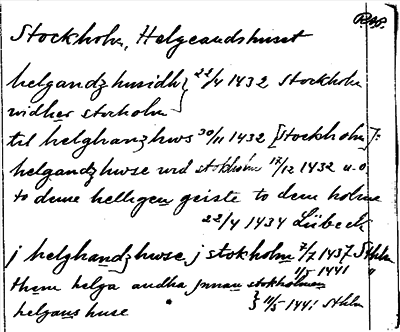 RAP.
Stockholm, Helgeandshuset
helgandz husidh } 22/4 1432 Stockholm
widher stocholm
til helghanz hws 30/11 1432 [Stockholm]:
helgandz hwse wid stokholm 17/12 1432 u.o.
to deme helligen geiste to dem holme
22/4 1434 Lübeck
j helghandz hwse j stokholm 7/7 1437 Sthlm
them helga andha innan stokholmen 11/5 1441 "
helgans huse } 11/5 1441 Sthlm